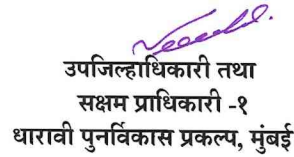 उपजिल्हाधिकारी तथा
सक्षम प्राधिकारी -१
धारावी पुनर्विकास प्रकल्प, मुंबई